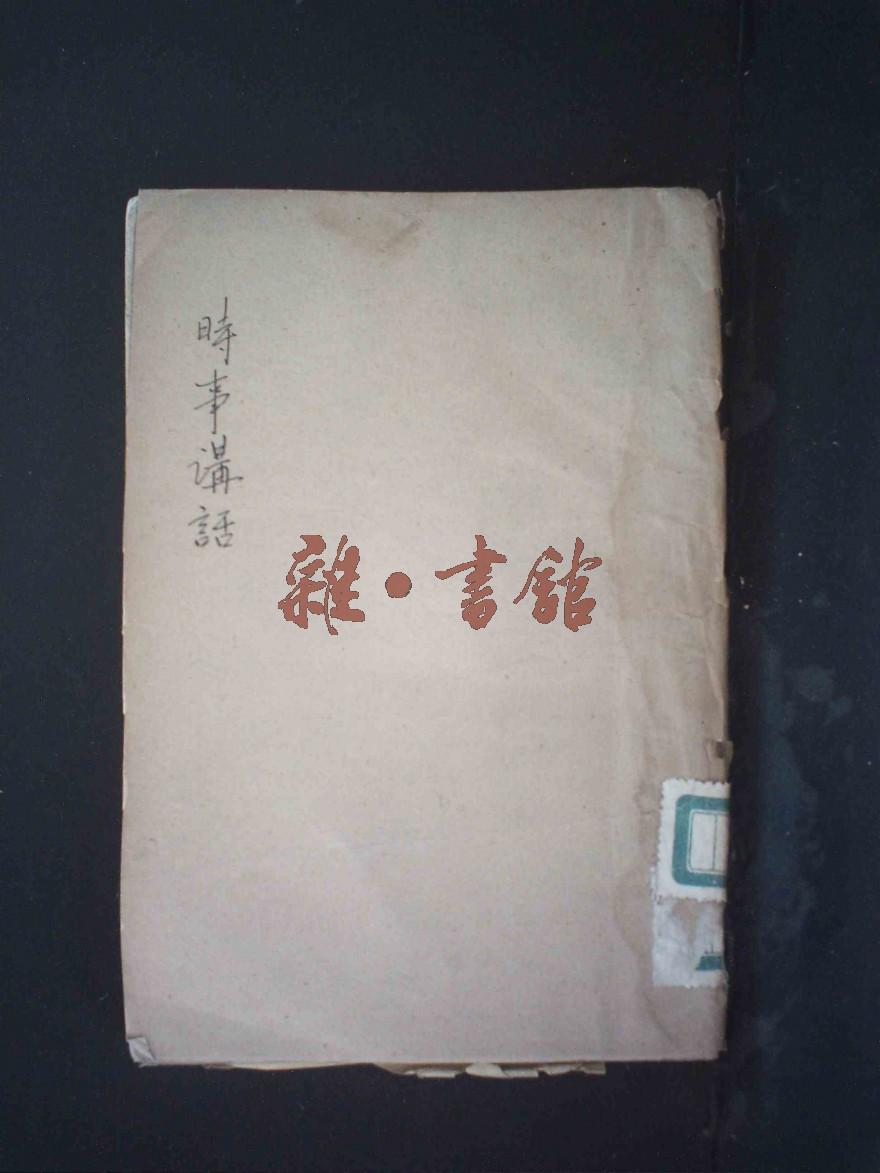 時事講話
雜·書館